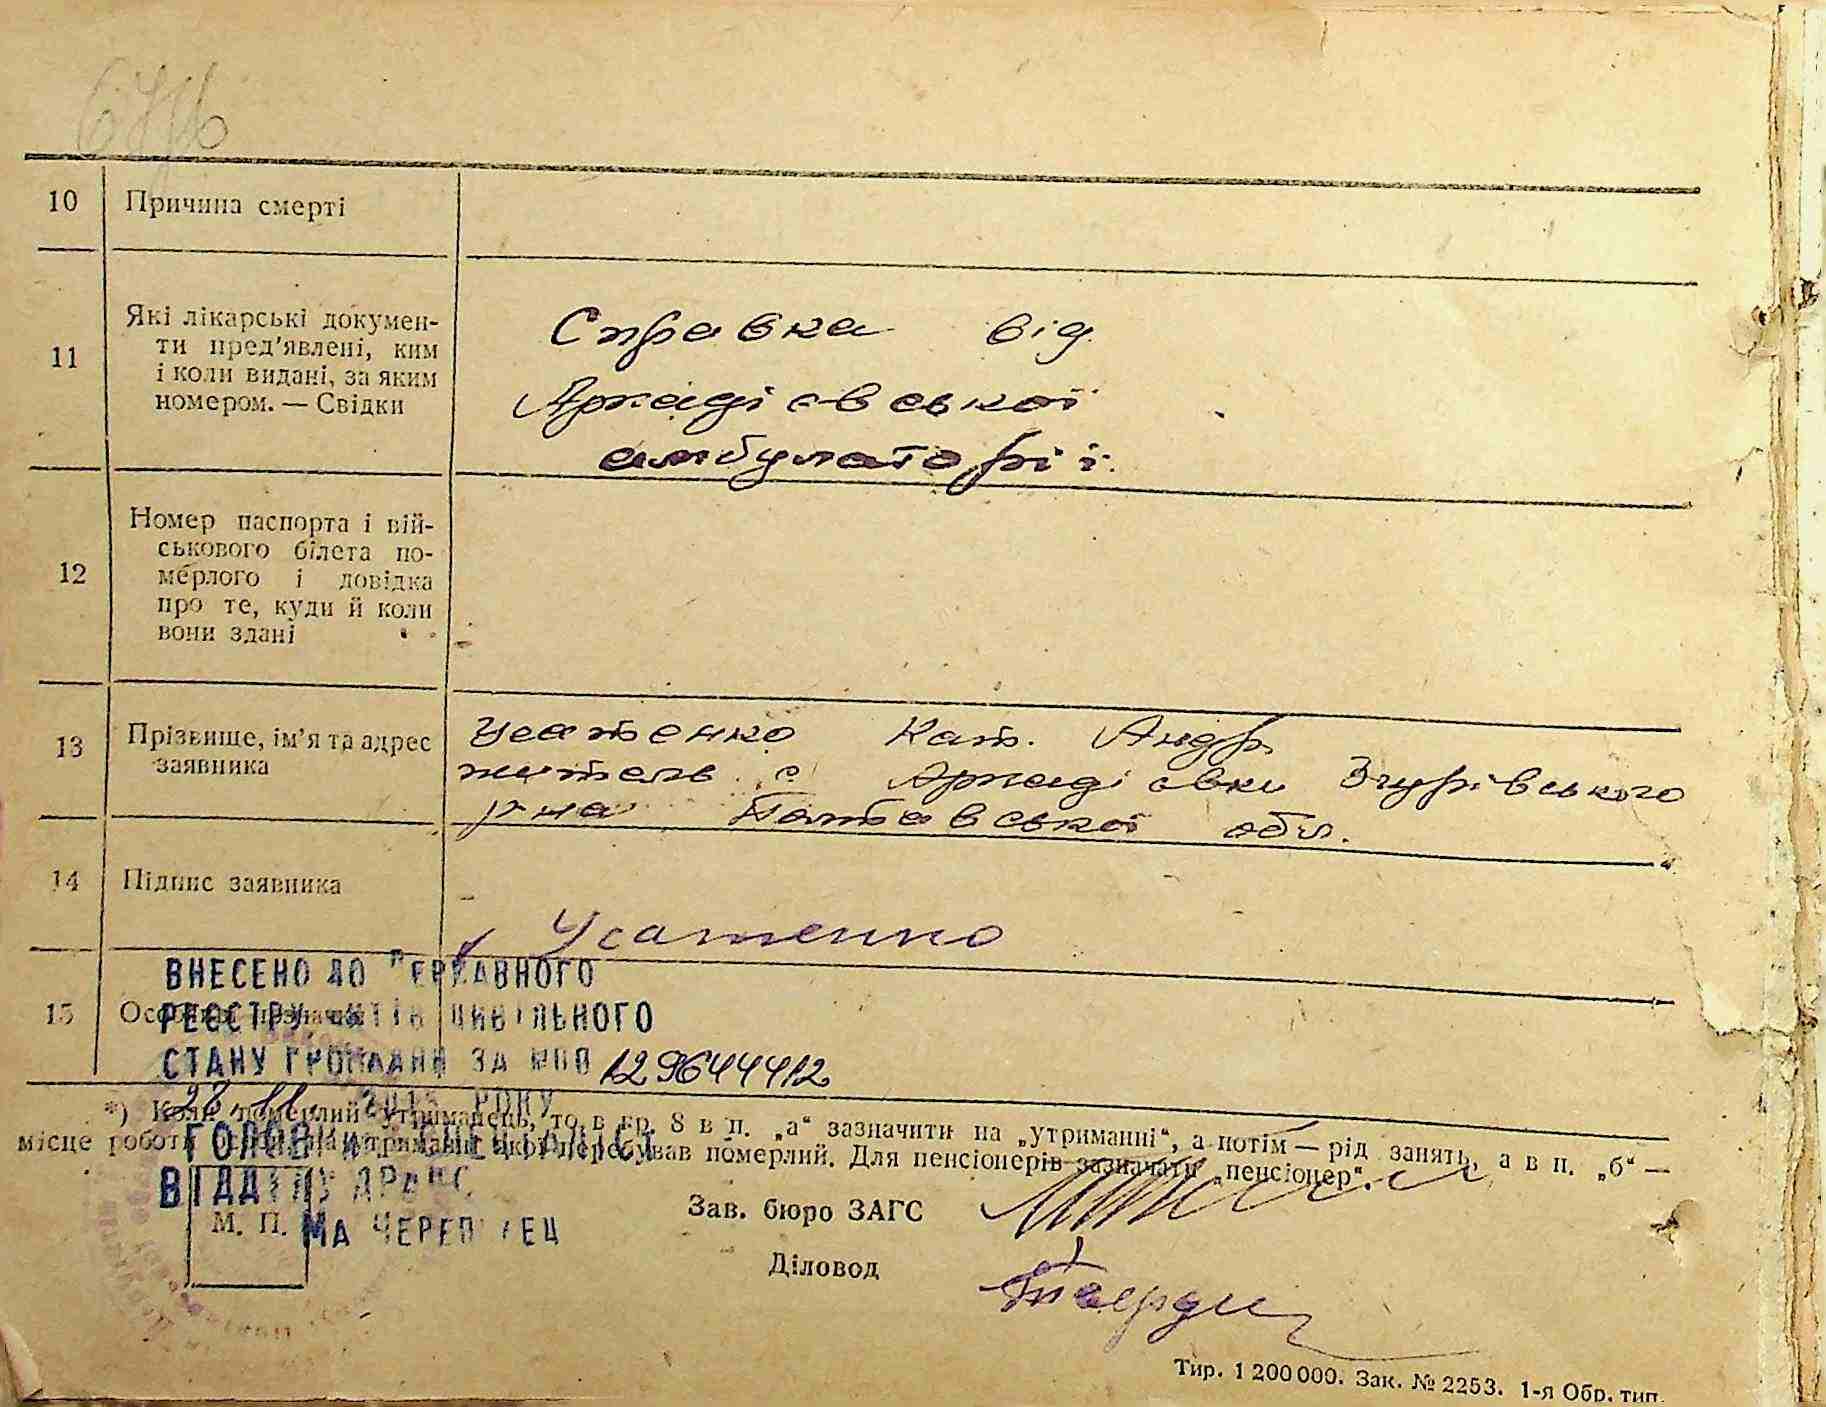 10 Причина смерті
11 Які лікарські докумен-
ти пред'явлені, ким
і коли видані, за яким
номером. — Свідки
Справка від
Аркадієвської
амбулаторії.
12 Номер паспорта і вій-
ськового білета по-
мерлого і довідка
про те, куди й коли
вони здані
13 Прізвище, ім'я та адрес
заявника
Усатенко Кат. Андр.
житель с Аркадієвки Згурівського
р-на Полтавської обл.
14 Підпис заявника
Усатенко
ВНЕСЕНО ДО ДЕРЖАВНОГО
15 Особливі
РЕЄСТРУ АКТІВ ЦИВІЛЬНОГО
СТАНУ ГРОМАДЯН ЗА №00 129644412
РОКУ
*) Коли померлий утриманець, то в гр. 8 в п. „а“ зазначити на „утриманні“, а потім — рід занять, а в п. „б“ —
місце роботи перебував померлий. Для пенсіонерів зазначати „пенсіонер“.
ГОЛОВНИЙ СПЕЦІАЛІСТ
ВІДДІЛУ ДРАЦС
М. П.
Зав. бюро ЗАГС
Діловод
Тир. 1 200 000. Зак. № 2253. 1-я Обр. тип.